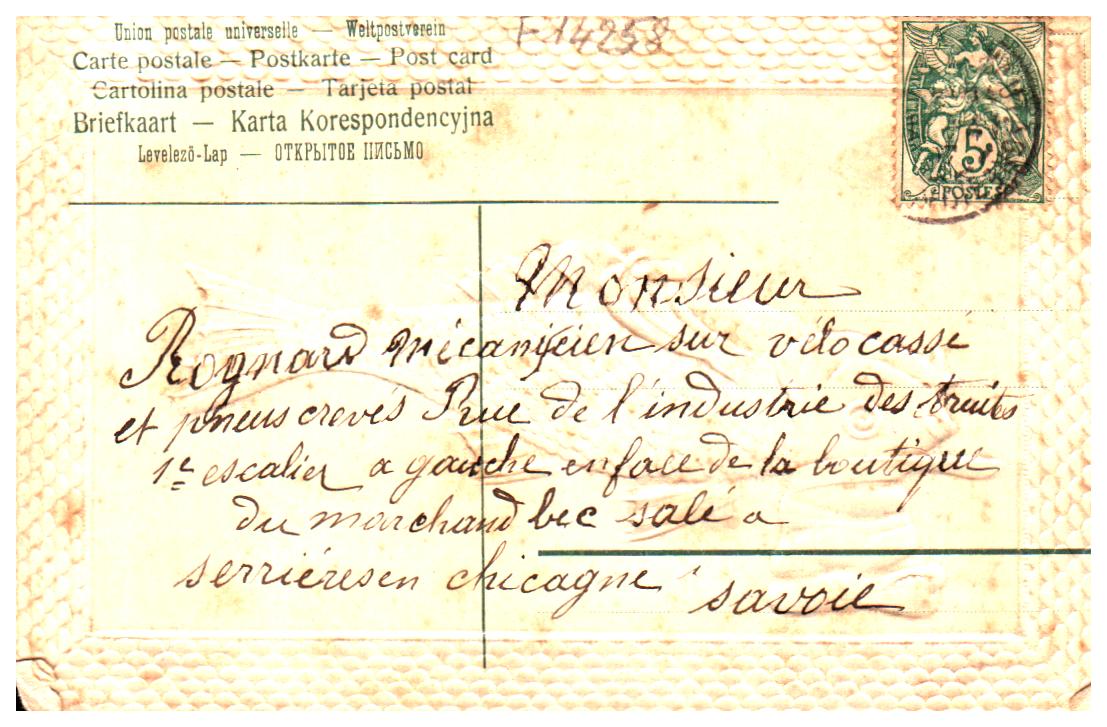 Union postale universelle — Weltpostverein
Carte postale — Postkarte — Post card
Cartolina postale — Tarjeta postal
Briefkaart — Karta Korespondencyjna
Levelezö-Lap — ОТКРЫТОЕ ПИСЬМО
F 14258
5
POSTES
Monsieur
Rognard mécanicien sur vélo cassé
et pneus crevés Rue de l'industrie des truites
1er escalier a gauche en face de la boutique
du marchand bec salé a
serrières en chicagne savoie